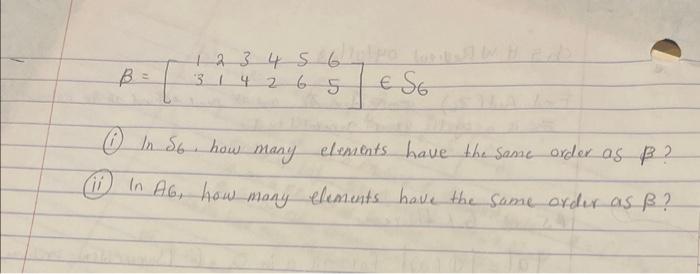 1 2 3 4 5 6
β = [ 3 1 4 2 6 5 ] ∈ S6
(i) In S6, how many elements have the same order as β?
(ii) In A6, how many elements have the same order as β?